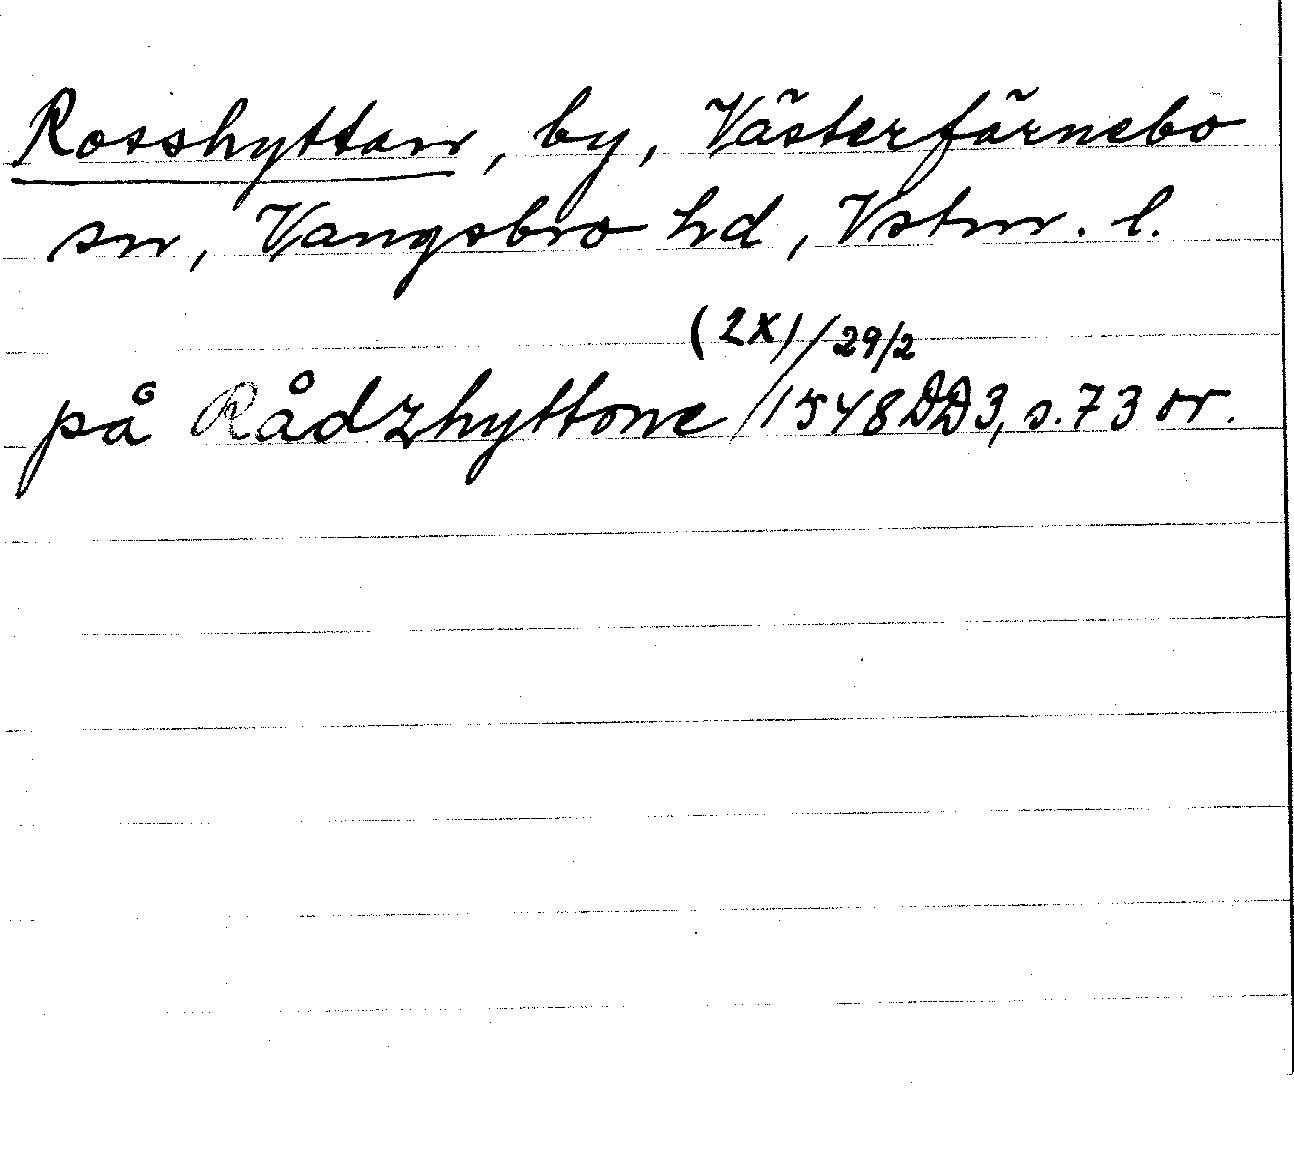 Rosshyttan, by, Västerfärnebo
sn, Vangsbro hd, Vstm. l.
(2X)/29/2
på Rådzhyttone /1548 DD3, s. 73 or.